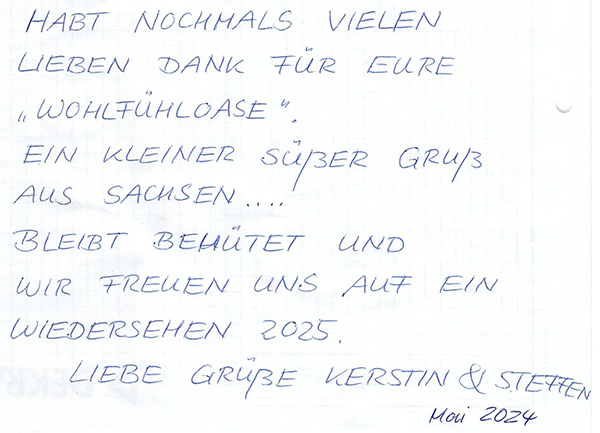 HABT NOCHMALS VIELEN
LIEBEN DANK FÜR EURE
„WOHLFÜHLOASE“.
EIN KLEINER SÜßER GRUß
AUS SACHSEN....
BLEIBT BEHÜTET UND
WIR FREUEN UNS AUF EIN
WIEDERSEHEN 2025.
LIEBE GRÜßE KERSTIN & STEFFEN
Mai 2024